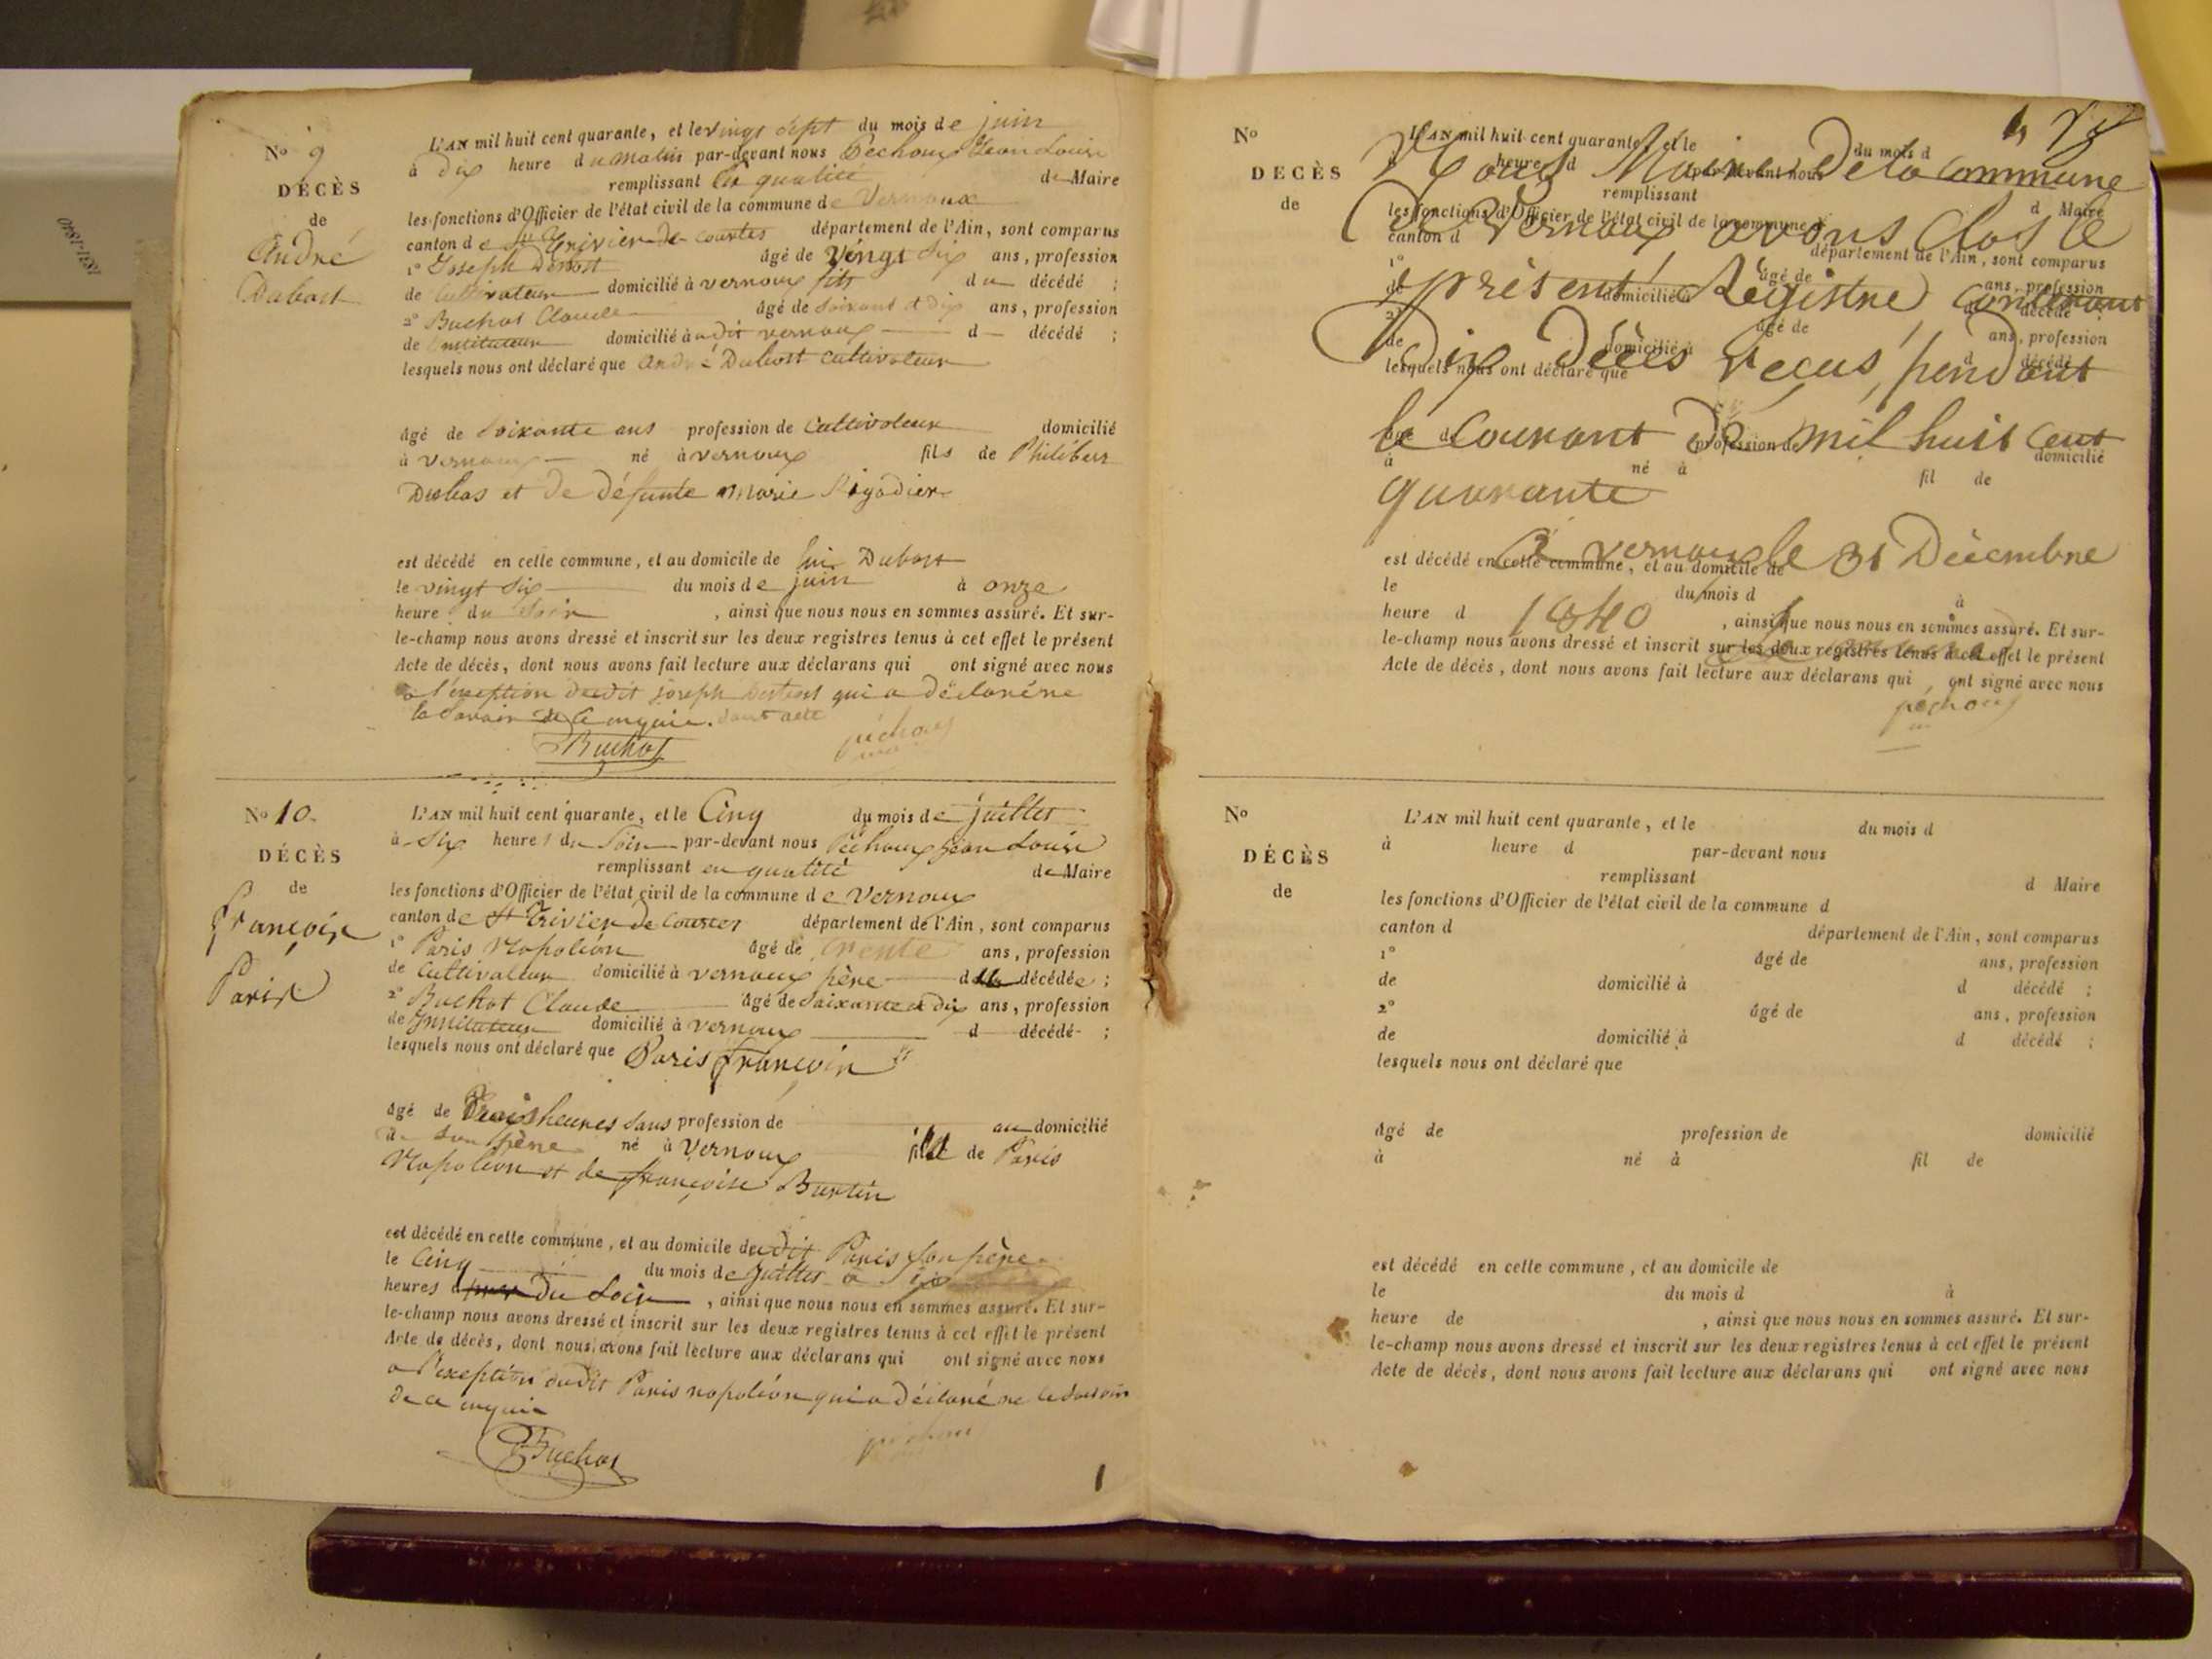 No 9
DÉCÈS
de
André
Dubost
L'AN mil huit cent quarante, et le vingt sept du mois de juin
à dix heure du matin par-devant nous Pechoux Jean Louis
remplissant en qualité de Maire
les fonctions d'Officier de l'état civil de la commune de Vernoux
canton de St Trivier de Courtes département de l'Ain, sont comparus
1° Joseph Dubost âgé de Vingt Six ans, profession
de Cultivateur domicilié à vernoux fils du décédé ;
2° Buchot Claude âgé de soixant et dix ans, profession
de instituteur domicilié à udit vernoux d décédé ;
lesquels nous ont déclaré que André Dubost cultivateur
âgé de soixante ans profession de Cultivateur domicilié
à vernoux né à vernoux fils de Philibert
Dubos et de défunte Marie
est décédé en cette commune, et au domicile de lui Dubost
le vingt Six du mois de juin à onze
heure du Soir , ainsi que nous nous en sommes assuré. Et sur-
le-champ nous avons dressé et inscrit sur les deux registres tenus à cet effet le présent
Acte de décès, dont nous avons fait lecture aux déclarans qui ont signé avec nous
a l'exception dudit joseph Dubost qui a déclaré ne
le savoir de ce enquis. dont acte
Buchot
péchoux
No 10.
DÉCÈS
de
françois
Paris
L'AN mil huit cent quarante, et le Cinq du mois de juillet
à Six heures du Soir par-devant nous Péchoux jean Louis
remplissant en qualité de Maire
les fonctions d'Officier de l'état civil de la commune de Vernoux
canton de St Trivier de Courtes département de l'Ain, sont comparus
1° Paris Napoléon âgé de trente ans, profession
de Cultivateur domicilié à vernoux père décédée ;
2° Buchot Claude âgé de Soixante et dix ans, profession
de Instituteur domicilié à vernoux d décédé ;
lesquels nous ont déclaré que Paris françois
âgé de Trois heures Sans profession de au domicilié
de Son père né à Vernoux fils de Paris
Napoléon et de françoise Burtin
est décédé en cette commune, et au domicile dudit Paris Son père
le Cinq du mois de juillet à Six
heures du Soir , ainsi que nous nous en sommes assuré. Et sur-
le-champ nous avons dressé et inscrit sur les deux registres tenus à cet effet le présent
Acte de décès, dont nous avons fait lecture aux déclarans qui ont signé avec nous
a l'exeption dudit Paris napoléon qui a déclaré ne le savoir
de ce enquis
Buchot
péchoux
No
DÉCÈS
de
L'AN mil huit cent quarante, et le du mois d
à heure d par-devant nous
remplissant d Maire
les fonctions d'Officier de l'état civil de la commune d
canton d département de l'Ain, sont comparus
1° âgé de ans, profession
de domicilié à d décédé ;
2° âgé de ans, profession
de domicilié à d décédé
lesquels nous ont déclaré que
Nous Maire de la commune
de Vernoux avons Clos le
présent Registre contenant
Dix Décès reçus pendant
le Courant de mil huit cent
quarante
âgé de profession de domicilié
à né à fil de
a vernoux le 31 Décembre
1840
est décédé en cette commune, et au domicile de
le du mois d à
heure d , ainsi que nous nous en sommes assuré. Et sur-
le-champ nous avons dressé et inscrit sur les deux registres tenus à cet effet le présent
Acte de décès, dont nous avons fait lecture aux déclarans qui ont signé avec nous
péchoux
No
DÉCÈS
de
L'AN mil huit cent quarante, et le du mois d
à heure d par-devant nous
remplissant d Maire
les fonctions d'Officier de l'état civil de la commune d
canton d département de l'Ain, sont comparus
1° âgé de ans, profession
de domicilié à d décédé ;
2° âgé de ans, profession
de domicilié à d décédé ;
lesquels nous ont déclaré que
âgé de profession de domicilié
à né à fil de
est décédé en cette commune, et au domicile de
le du mois d à
heure de , ainsi que nous nous en sommes assuré. Et sur-
le-champ nous avons dressé et inscrit sur les deux registres tenus à cet effet le présent
Acte de décès, dont nous avons fait lecture aux déclarans qui ont signé avec nous